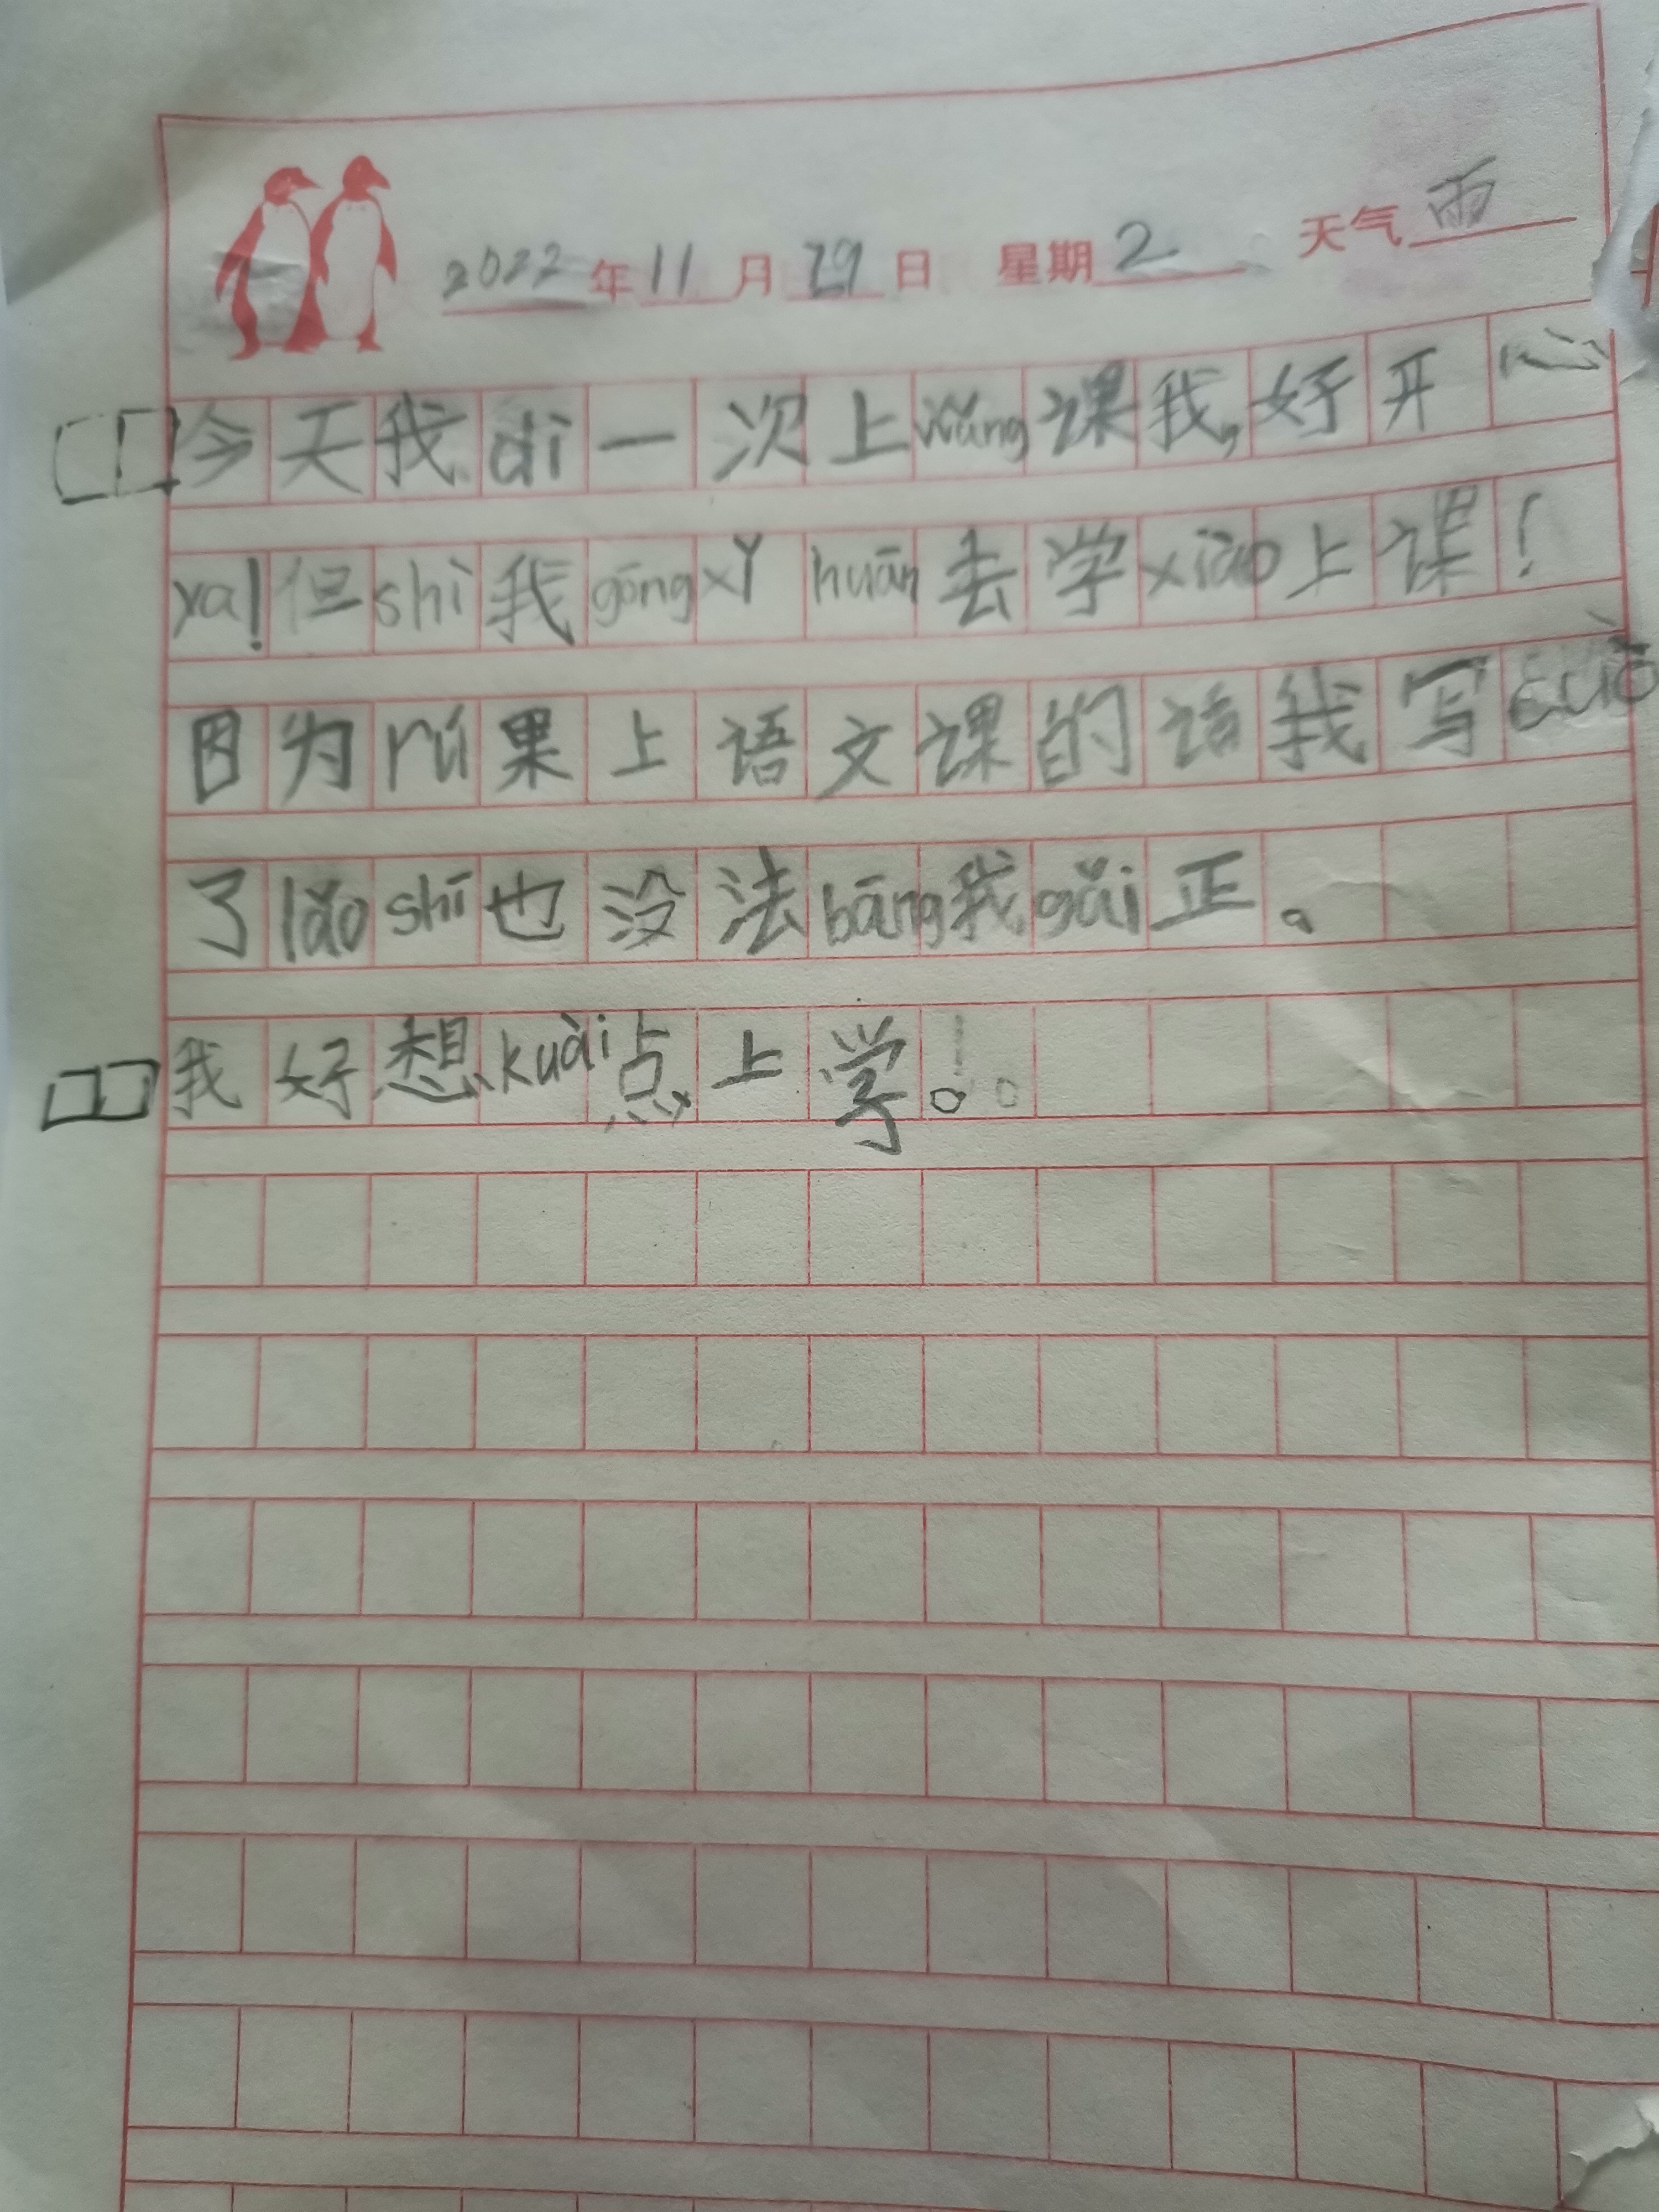 2022年11月29日 星期2 天气雨
今天我dì一次上wǎng课我,好开心
ya!但shì我gèngxǐhuān去学xiào上课!
因为rú果上语文课的话我写cuò
了lǎoshī也没法bāng我gǎi正。
我好想kuài点上学!。